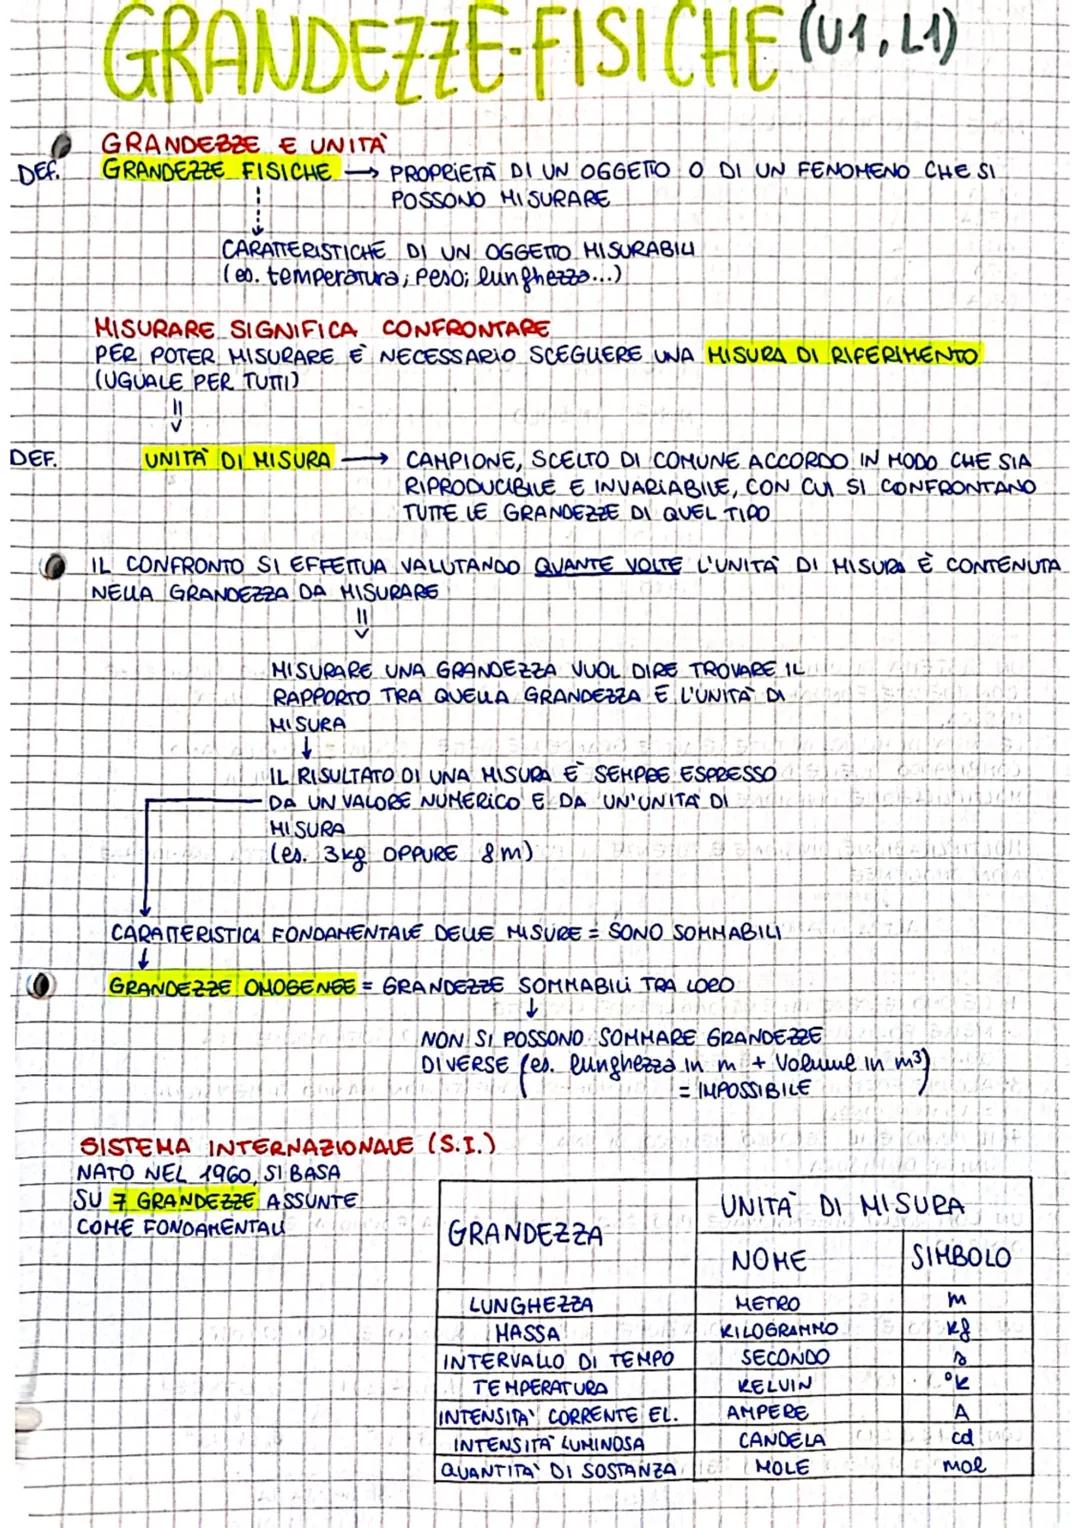 GRANDEZZE FISICHE (U1, L1)
GRANDEZZE E UNITÀ
DEF. GRANDEZZE FISICHE → PROPRIETÀ DI UN OGGETTO O DI UN FENOMENO CHE SI
POSSONO MISURARE
CARATTERISTICHE DI UN OGGETTO MISURABILI
(es. temperatura; peso; lunghezza...)
MISURARE SIGNIFICA CONFRONTARE
PER POTER MISURARE È NECESSARIO SCEGLIERE UNA MISURA DI RIFERIMENTO
(UGUALE PER TUTTI)
DEF. UNITÀ DI MISURA → CAMPIONE, SCELTO DI COMUNE ACCORDO IN MODO CHE SIA
RIPRODUCIBILE E INVARIABILE, CON CUI SI CONFRONTANO
TUTTE LE GRANDEZZE DI QUEL TIPO
IL CONFRONTO SI EFFETTUA VALUTANDO QUANTE VOLTE L'UNITÀ DI MISURA È CONTENUTA
NELLA GRANDEZZA DA MISURARE
MISURARE UNA GRANDEZZA VUOL DIRE TROVARE IL
RAPPORTO TRA QUELLA GRANDEZZA E L'UNITÀ DI
MISURA
IL RISULTATO DI UNA MISURA È SEMPRE ESPRESSO
DA UN VALORE NUMERICO E DA UN'UNITÀ DI
MISURA
(es. 3kg OPPURE 8m)
CARATTERISTICA FONDAMENTALE DELLE MISURE = SONO SOMMABILI
GRANDEZZE OMOGENEE = GRANDEZZE SOMMABILI TRA LORO
NON SI POSSONO SOMMARE GRANDEZZE
DIVERSE (es. lunghezza in m + Volume in m³)
= IMPOSSIBILE
SISTEMA INTERNAZIONALE (S.I.)
NATO NEL 1960, SI BASA
SU 7 GRANDEZZE ASSUNTE
COME FONDAMENTALI
GRANDEZZA UNITÀ DI MISURA
NOME SIMBOLO
LUNGHEZZA METRO m
MASSA KILOGRAMMO kg
INTERVALLO DI TEMPO SECONDO s
TEMPERATURA KELVIN °K
INTENSITÀ CORRENTE EL. AMPERE A
INTENSITÀ LUMINOSA CANDELA cd
QUANTITÀ DI SOSTANZA MOLE mol